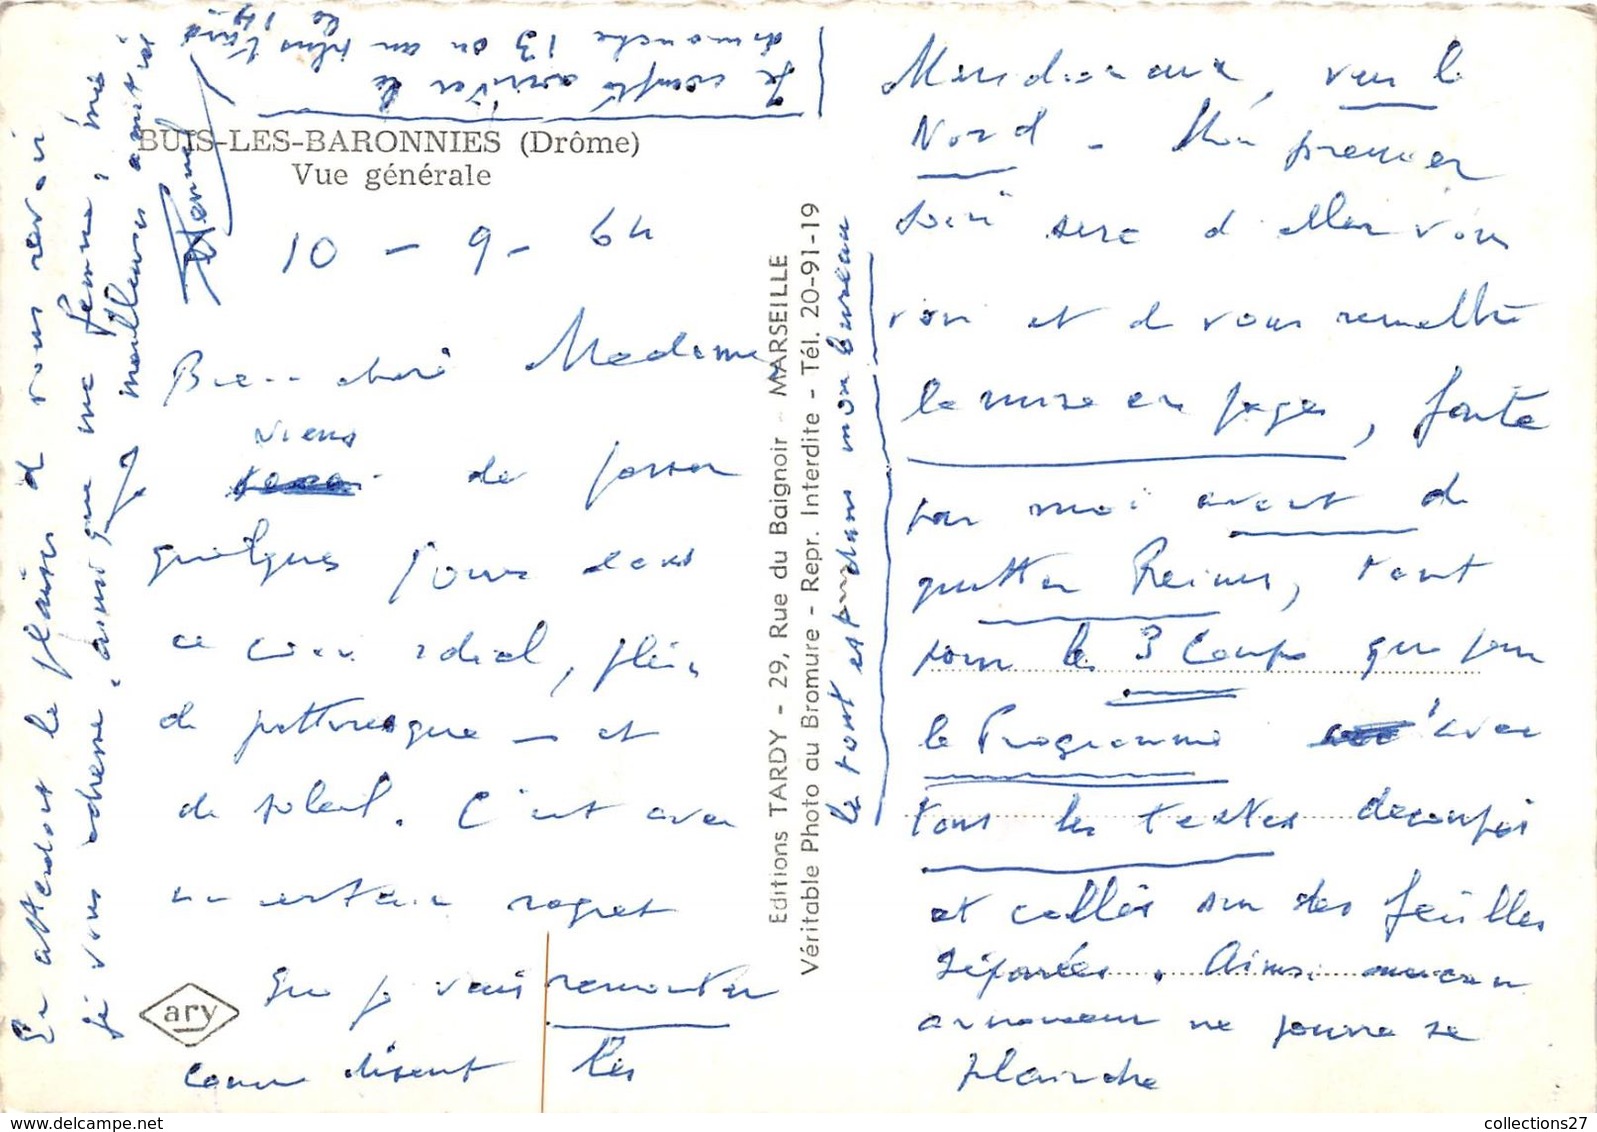 BUIS-LES-BARONNIES (Drôme)
Vue générale
10 - 9 - 64
Bien chère Madame
viens
de passer
quelques jours dans
ce coin idéal, plein
de pittoresque - et
de soleil. C'est avec
un certain regret
que je vais remonter
comme disent les
Méridionaux, vers le
Nord - Mon premier
soin sera d'aller vous
voir et de vous remettre
la mise en pages, faite
par moi avant de
quitter Reims, tant
pour les 3 Coups que pour
le Programme avec
tous les textes découpés
et collés sur des feuilles
séparées. Ainsi aucun
annonceur ne pourra se
plaindre
le tout est dans mon bureau
Je compte arriver le
dimanche 13 ou au plus tard
le 14
En attendant le plaisir de vous revoir
je vous adresse, ainsi que ma femme, mes
meilleures amitiés
Editions TARDY - 29, Rue du Baignoir - MARSEILLE
Véritable Photo au Bromure - Repr. Interdite - Tél. 20-91-19
ary
collections27